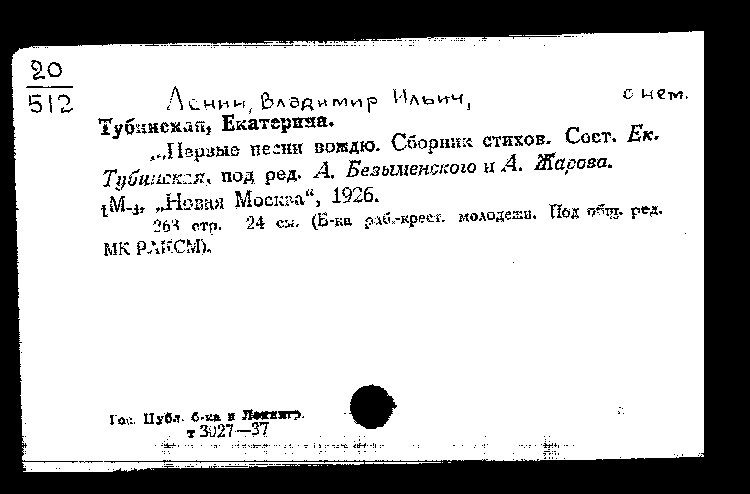 20
512
Ленин, Владимир Ильич, о нем.
Тубинская, Екатерина.
„Первые песни вождю. Сборник стихов. Сост. Ек.
Тубинская, под ред. А. Безыменского и А. Жарова.
[М-], „Новая Москва“, 1926.
263 стр. 24 см. (Б-ка раб.-крест. молодежи. Под общ. ред.
МК РЛКСМ).
Гос. Публ. б-ка в Ленингр.
т 3027—37